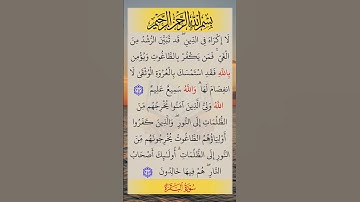 بِسْمِ اللَّهِ الرَّحْمَٰنِ الرَّحِيمِ
لَا إِكْرَاهَ فِي الدِّينِ ۖ قَد تَّبَيَّنَ الرُّشْدُ مِنَ
الْغَيِّ ۚ فَمَن يَكْفُرْ بِالطَّاغُوتِ وَيُؤْمِن
بِاللَّهِ فَقَدِ اسْتَمْسَكَ بِالْعُرْوَةِ الْوُثْقَىٰ لَا
انفِصَامَ لَهَا ۗ وَاللَّهُ سَمِيعٌ عَلِيمٌ
اللَّهُ وَلِيُّ الَّذِينَ آمَنُوا يُخْرِجُهُم مِّنَ
الظُّلُمَاتِ إِلَى النُّورِ ۖ وَالَّذِينَ كَفَرُوا
أَوْلِيَاؤُهُمُ الطَّاغُوتُ يُخْرِجُونَهُم مِّنَ
النُّورِ إِلَى الظُّلُمَاتِ ۗ أُولَٰئِكَ أَصْحَابُ
النَّارِ ۖ هُمْ فِيهَا خَالِدُونَ
سُورَةُ الْبَقَرَةِ